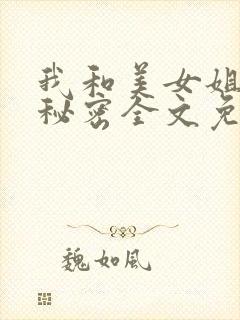 我和美女姐
秘密全文免
魏如风